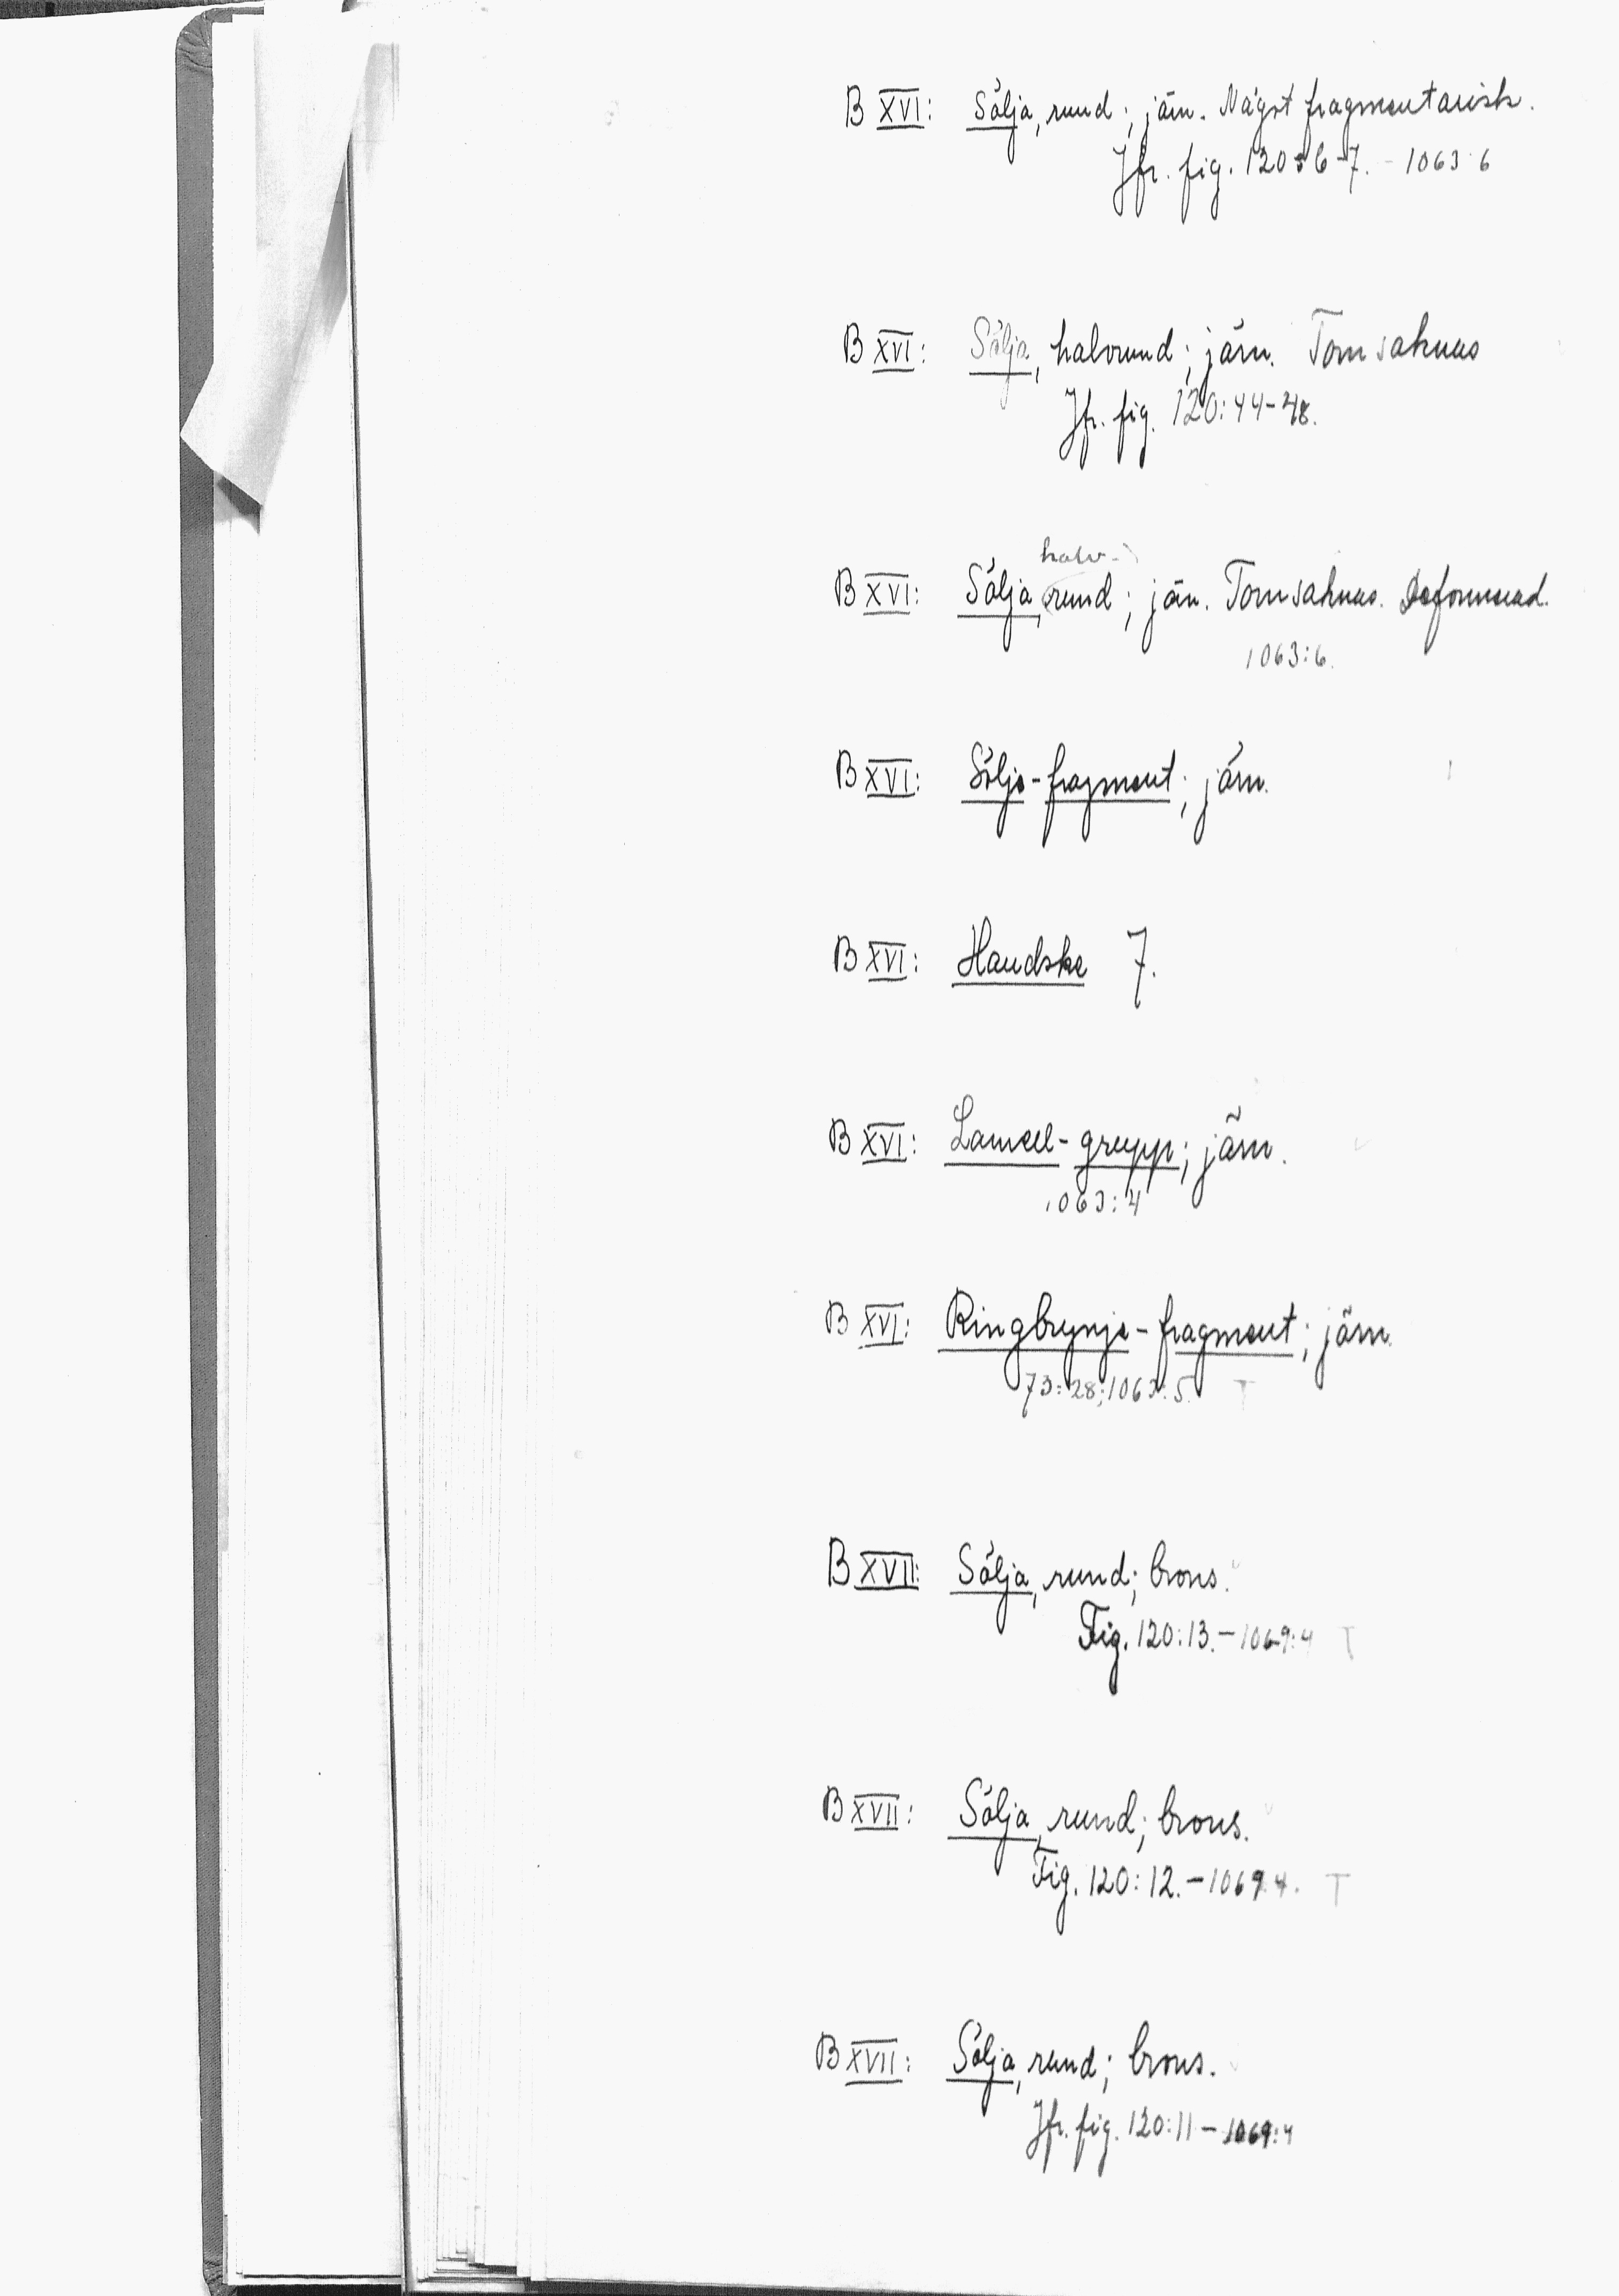 B XVI: Sölja, rund; järn. Något fragmentarisk.
Jfr. fig. 120:6-7. - 1063:6
B XVI: Sölja, halvrund; järn. Torn saknas
Jfr. fig. 120:44-48.
halv-
B XVI: Sölja, rund; järn. Torn saknas. Deformerad.
1063:6.
B XVI: Sölje-fragment; järn.
B XVI: Handske 7.
B XVI: Lamell-grupp; järn.
1063:4
B XVI: Ringbrynje-fragment; järn.
73:28; 1063:5. T
B XVII: Sölja, rund; brons.
Fig. 120:13. - 1069:4 T
B XVII: Sölja, rund; brons.
Fig. 120:12. - 1069:4. T
B XVII: Sölja, rund; brons.
Jfr. fig. 120:11 - 1069:4